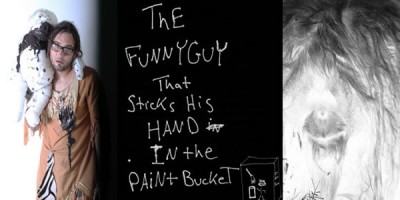 ThE
FUNNYGUY
That
Sticks His
HAND
IN the
PAiNt BuckeT